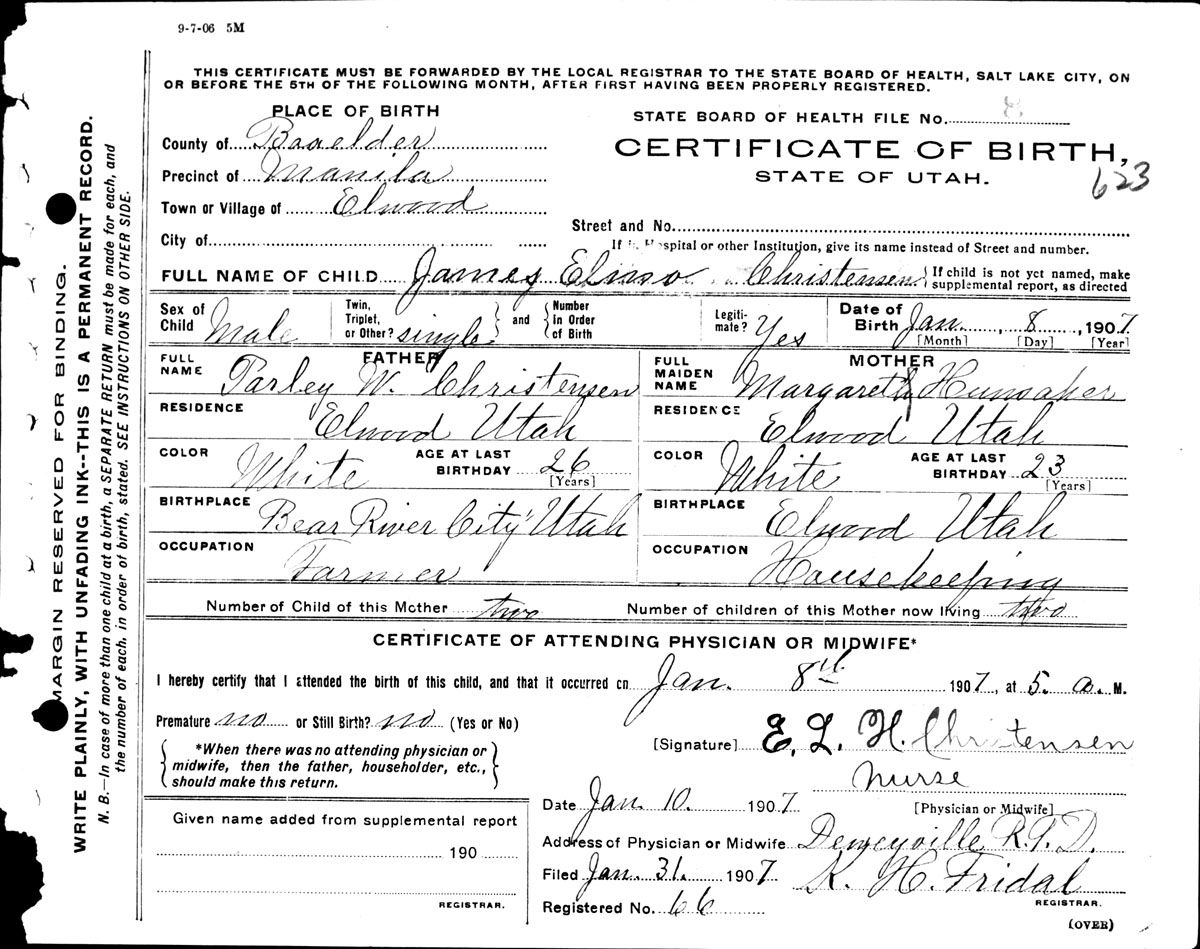 9-7-06 5M
THIS CERTIFICATE MUST BE FORWARDED BY THE LOCAL REGISTRAR TO THE STATE BOARD OF HEALTH, SALT LAKE CITY, ON
OR BEFORE THE 5TH OF THE FOLLOWING MONTH, AFTER FIRST HAVING BEEN PROPERLY REGISTERED.
MARGIN RESERVED FOR BINDING.
WRITE PLAINLY, WITH UNFADING INK--THIS IS A PERMANENT RECORD.
N. B.—In case of more than one child at a birth, a SEPARATE RETURN must be made for each, and
the number of each, in order of birth, stated. SEE INSTRUCTIONS ON OTHER SIDE.
PLACE OF BIRTH
County of Boxelder
Precinct of Manila
Town or Village of Elwood
City of
STATE BOARD OF HEALTH FILE No.
CERTIFICATE OF BIRTH,
STATE OF UTAH.
623
Street and No.
If in Hospital or other Institution, give its name instead of Street and number.
FULL NAME OF CHILD James Elmo Christensen { If child is not yet named, make
supplemental report, as directed
Sex of
Child Male
Twin,
Triplet,
or Other? single } and { Number
in Order
of Birth
Legiti-
mate? Yes
Date of
Birth Jan. 8, 1907
[Month] [Day] [Year]
FATHER
FULL
NAME Parley W. Christensen
RESIDENCE Elwood Utah
COLOR White AGE AT LAST
BIRTHDAY 26
[Years]
BIRTHPLACE Bear River City, Utah
OCCUPATION Farmer
MOTHER
FULL
MAIDEN
NAME Margareth Hunsaker
RESIDENCE Elwood Utah
COLOR White AGE AT LAST
BIRTHDAY 23
[Years]
BIRTHPLACE Elwood Utah
OCCUPATION Housekeeping
Number of Child of this Mother two Number of children of this Mother now living two
CERTIFICATE OF ATTENDING PHYSICIAN OR MIDWIFE*
I hereby certify that I attended the birth of this child, and that it occurred on Jan. 8th 1907, at 5. a. M.
Premature no or Still Birth? no (Yes or No)
*When there was no attending physician or
midwife, then the father, householder, etc.,
should make this return.
[Signature] E. L. H. Christensen
nurse
[Physician or Midwife]
Date Jan. 10. 1907
Address of Physician or Midwife Deweyville R.F.D.
Filed Jan. 31. 1907 K. H. Fridal
REGISTRAR.
Registered No. 66
Given name added from supplemental report
190
REGISTRAR.
(OVER)